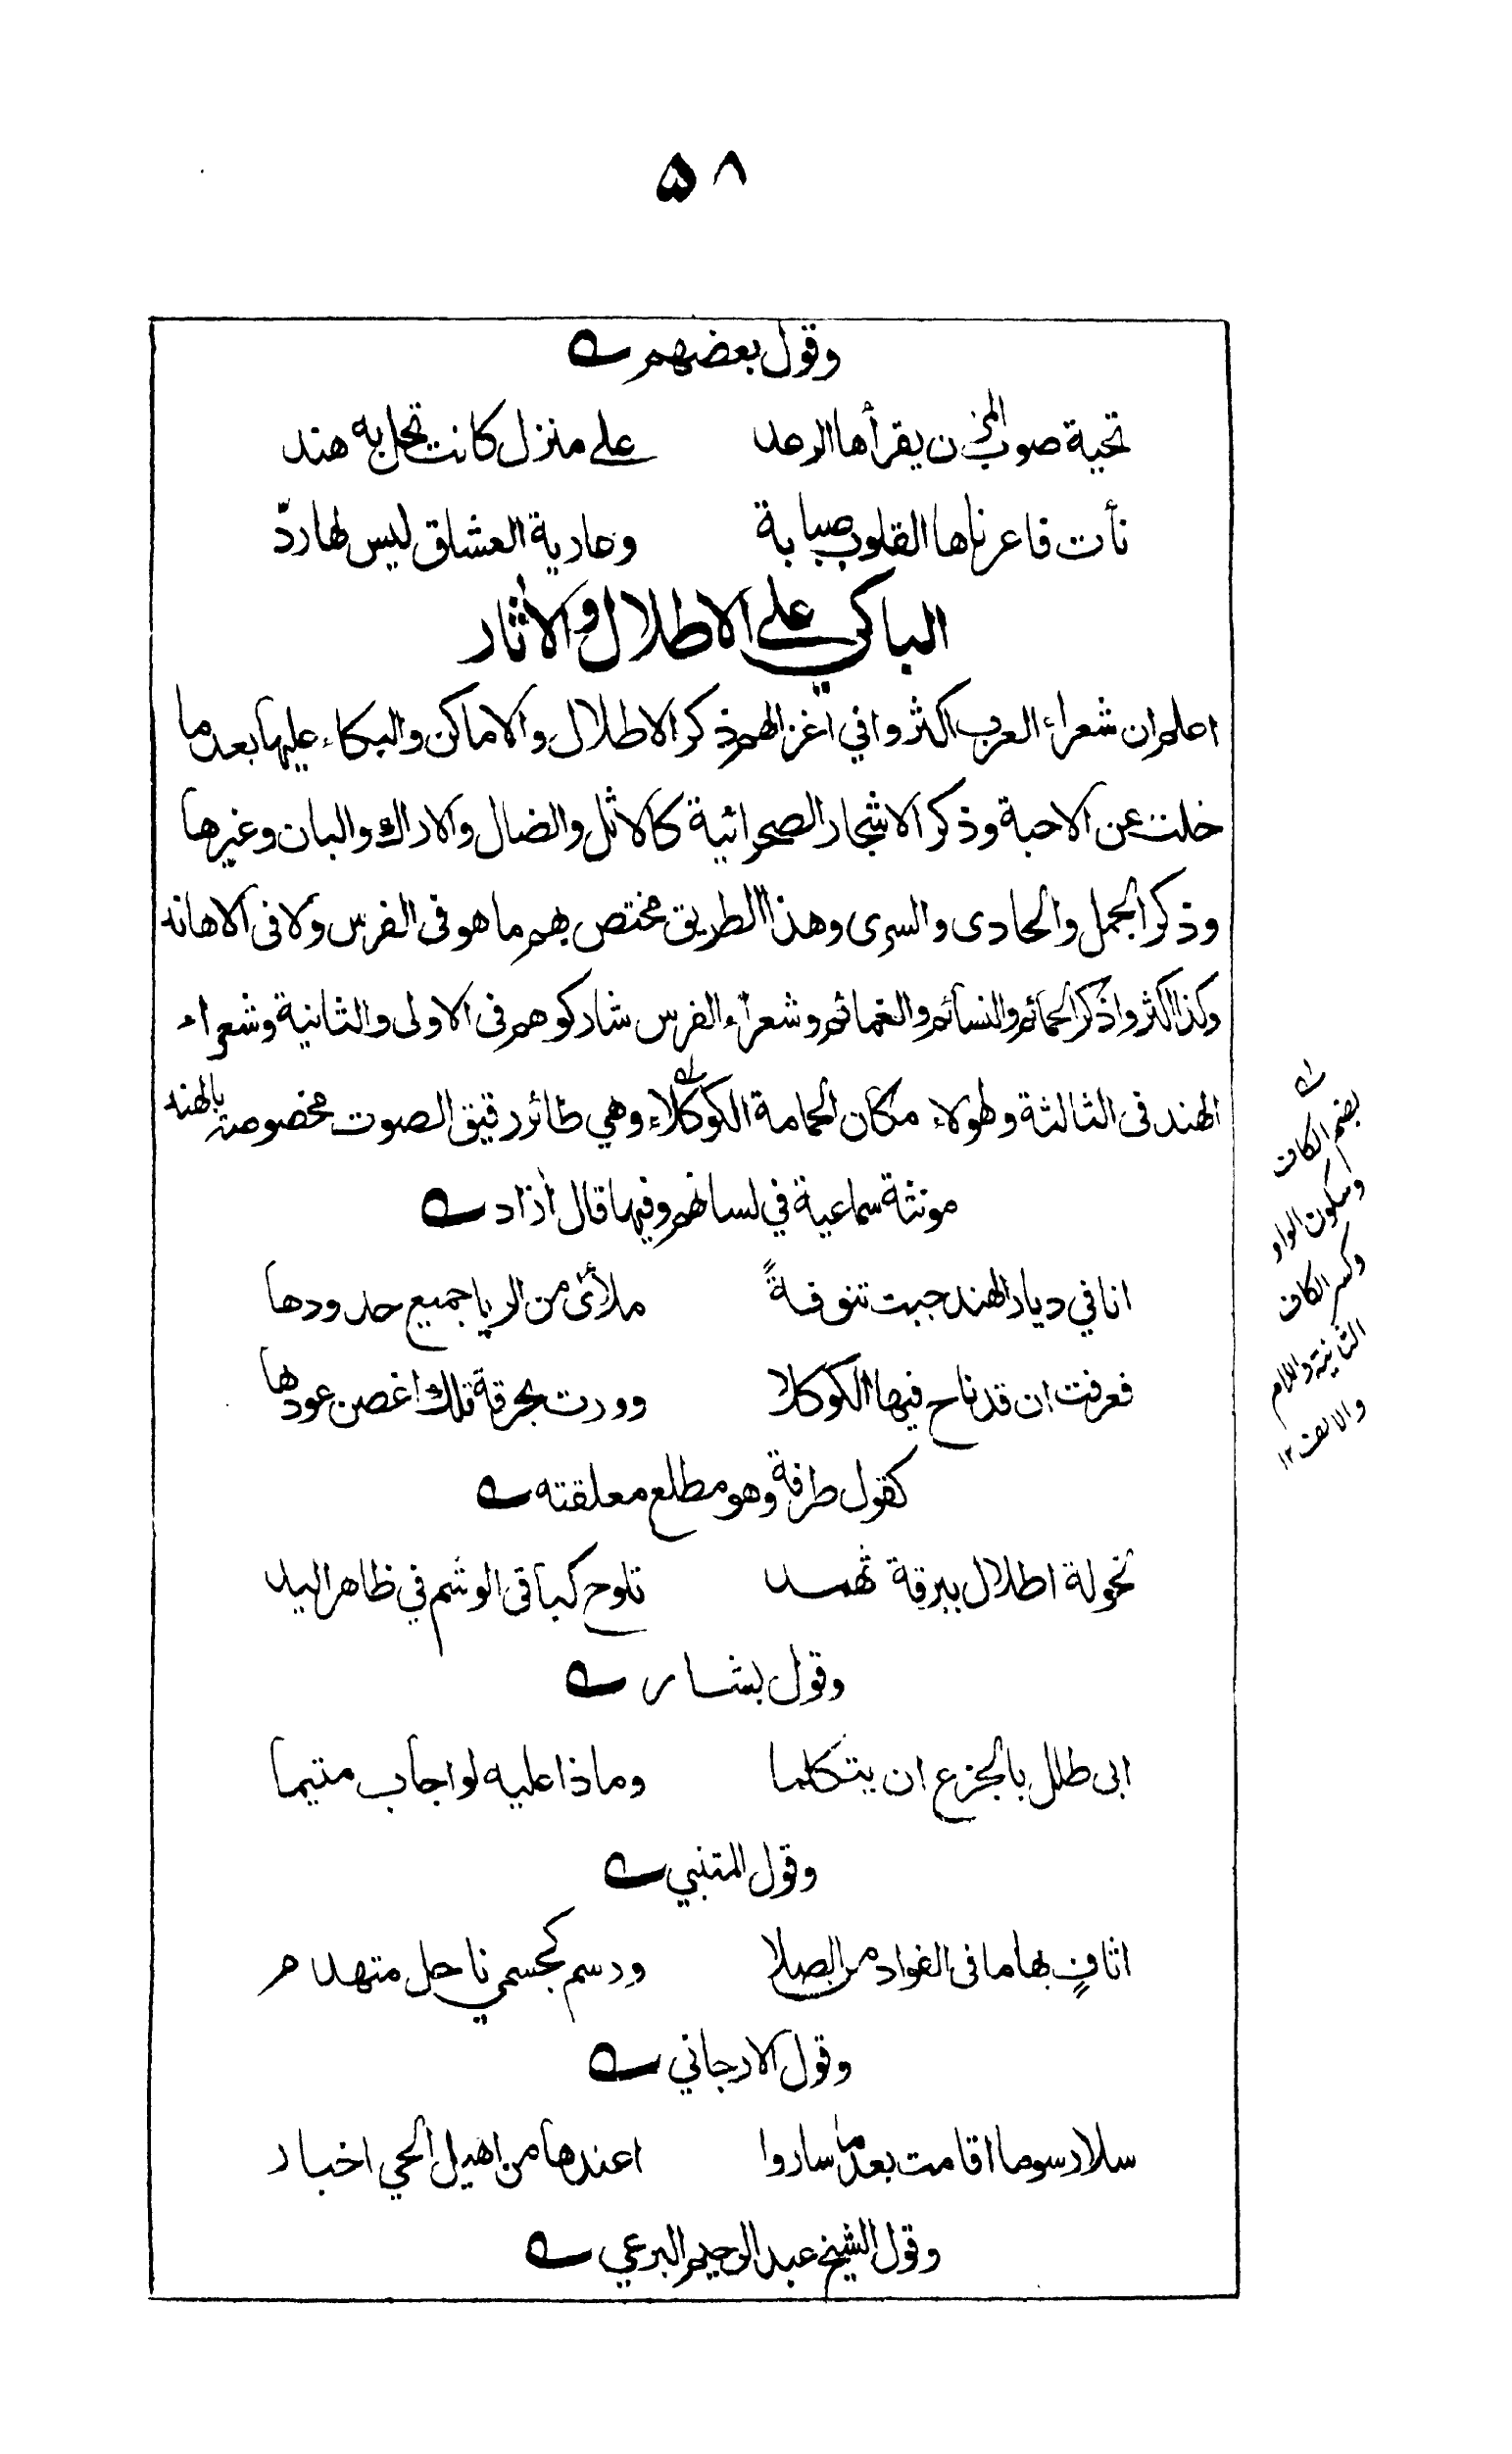 ٥٨
وقول بعضهم
تحية صوب المزن يقرأها الرعد على منزل كانت تحل به هند
نأت فاعرناها القلوب صبابة وعارية العشاق ليس لها ردّ
الباكي على الاطلال والاثار
اعلم ان شعراء العرب اكثروا في اغزالهم ذكر الاطلال والاماكن والبكاء عليها بعد ما
خلت عن الاحبة وذكر الاشجار الصحرائية كالاثل والضال والاراك والبان وغيرها
وذكر الجمل والحادى والسرى وهذا الطريق مختص بهم ما هو فى الفرس ولا فى الاهاند
وكذا اكثروا ذكر الحمائم والنسائم والغمائم وشعراء الفرس شاركوهم فى الاولى والثانية وشعراء
الهند فى الثالثة ولهولاء مكان الحمامة الكوكلاء وهي طائر رقيق الصوت مخصوصة بالهند
مونثة سماعية في لسانهم وفيها قال آزاد
انا في ديار الهند جبت تنوفةً ملأى من الريا جميع حدودها
فعرفت ان قد ناح فيها الكوكلا وورت بحرقة تلك اغصن عودها
كقول طرفة وهو مطلع معلقته
لخولة اطلال ببرقة ثهمد تلوح كباقى الوشم في ظاهر اليد
وقول بشار
ابى طلل بالجزع ان يتكلما وماذا عليه لو اجاب متيما
وقول المتنبي
اثافٍ بها ما فى الفواد من الصلا ورسم كجسمي ناحل متهدم
وقول الارجاني
سلا رسوما اقامت بعد ما ساروا اعندها من اهيل الحي اخبار
وقول الشيخ عبد الرحيم البرعي
بضم الكاف
وسكون الواو
وكسر الكاف
الثانية واللام
والالف ١٢